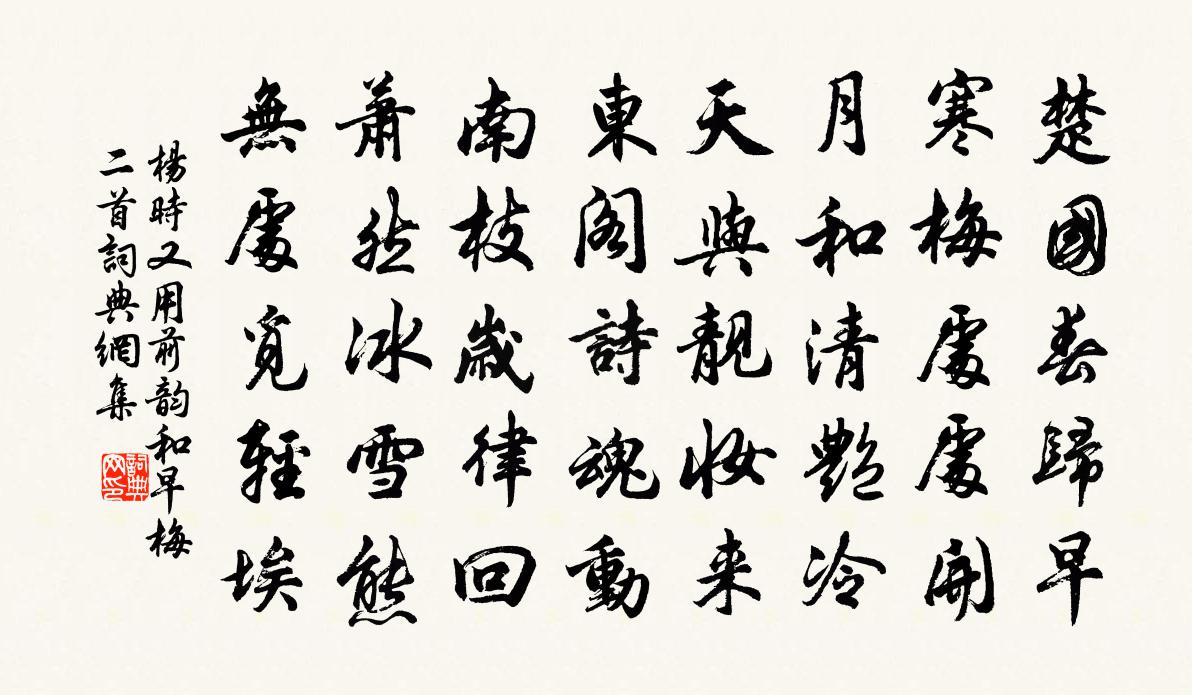 楚國春歸早
寒梅處處開
月和清艷冷
天與靚妝来
東閣詩魂動
南枝歲律回
蕭然冰雪態
無處覓輕埃
楊時又用前韵和早梅
二首詞典網集
詞典
网印